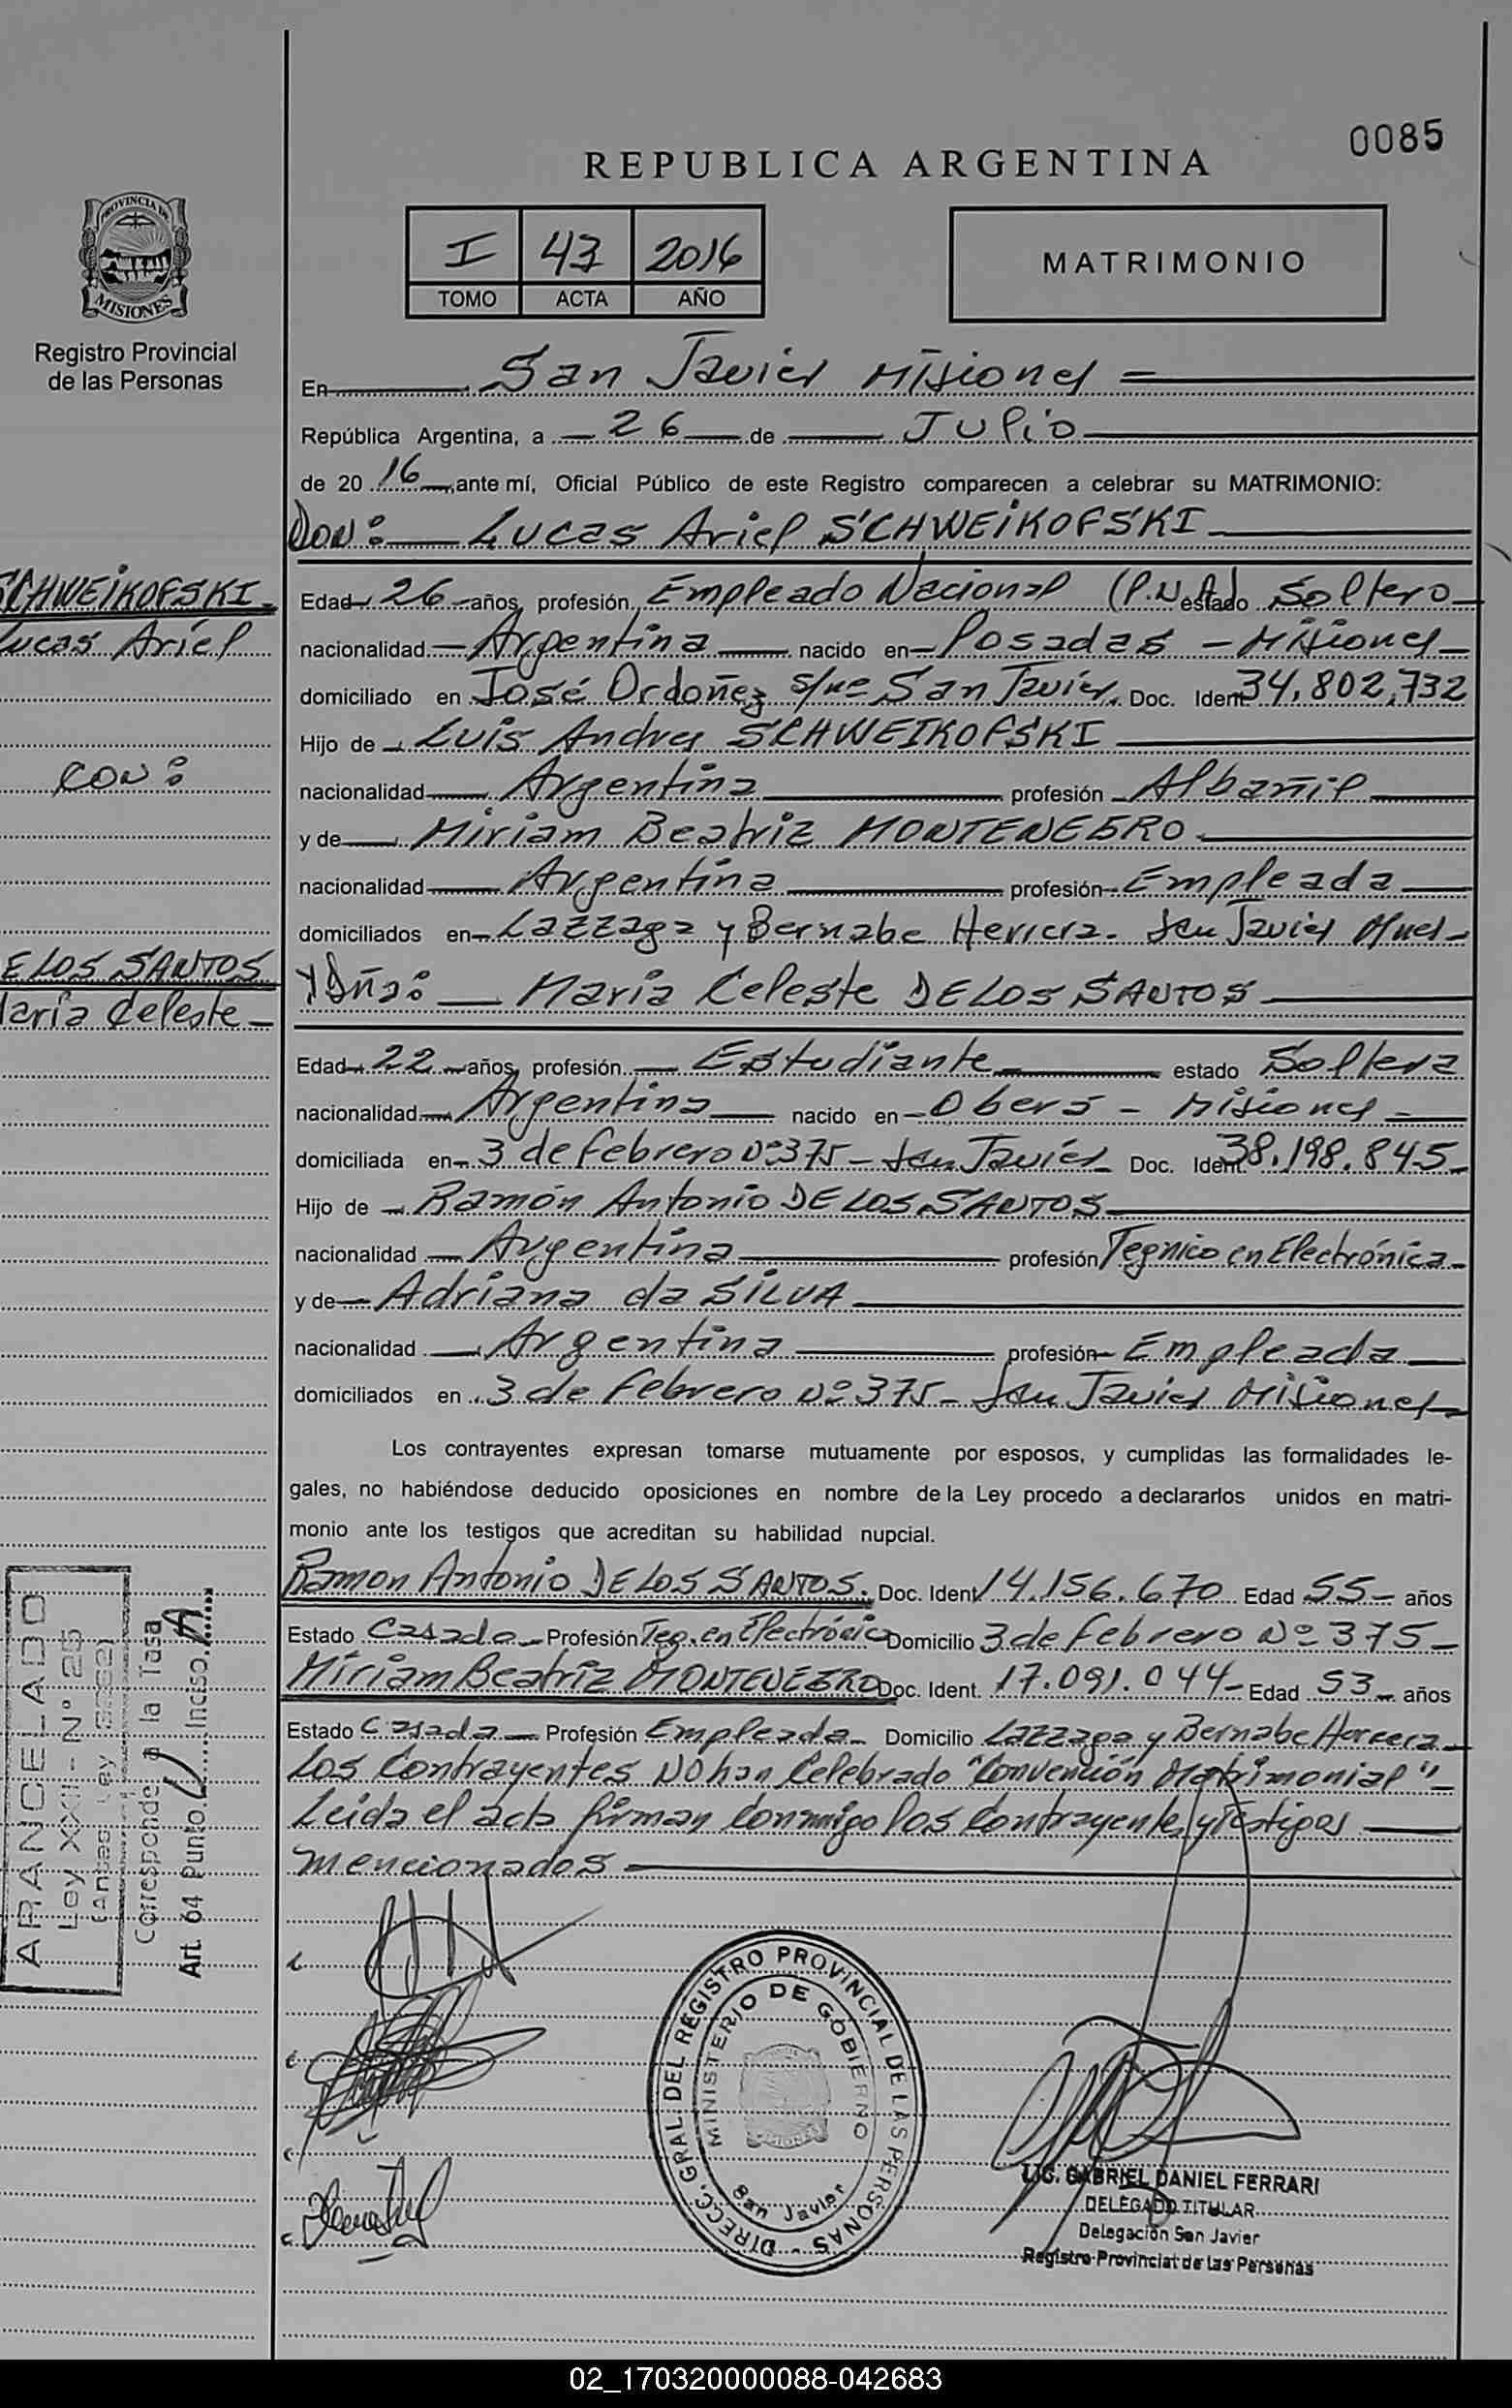 0085
REPUBLICA ARGENTINA
PROVINCIA DE
MISIONES
Registro Provincial
de las Personas
I 43 2016
TOMO ACTA AÑO
MATRIMONIO
En San Javier Misiones
República Argentina, a 26 de Julio
de 2016 ante mí, Oficial Público de este Registro comparecen a celebrar su MATRIMONIO:
Don: Lucas Ariel SCHWEIKOFSKI
SCHWEIKOFSKI
Lucas Ariel
CON:
DE LOS SANTOS
María Celeste
Edad 26 años, profesión Empleado Nacional (P.N.A) estado Soltero
nacionalidad Argentina nacido en Posadas - Misiones
domiciliado en José Ordoñez s/nº San Javier. Doc. Ident 34.802.732
Hijo de Luis Andres SCHWEIKOFSKI
nacionalidad Argentina profesión Albañil
y de Miriam Beatriz MONTENEGRO
nacionalidad Argentina profesión Empleada
domiciliados en Lazzaga y Bernabe Herrera. San Javier Mnes
Y Dña: Maria Celeste DE LOS SANTOS
Edad 22 años, profesión Estudiante estado Soltera
nacionalidad Argentina nacido en Oberá - Misiones
domiciliada en 3 de Febrero Nº 375 - San Javier Doc. Ident 38.198.845
Hijo de Ramón Antonio DE LOS SANTOS
nacionalidad Argentina profesión Tegnico en Electrónica
y de Adriana da SILVA
nacionalidad Argentina profesión Empleada
domiciliados en 3 de Febrero Nº 375 - San Javier Misiones
Los contrayentes expresan tomarse mutuamente por esposos, y cumplidas las formalidades le-
gales, no habiéndose deducido oposiciones en nombre de la Ley procedo a declararlos unidos en matri-
monio ante los testigos que acreditan su habilidad nupcial.
Ramon Antonio DE LOS SANTOS. Doc. Ident 14.156.670 Edad 55 años
Estado Casado Profesión Teg. en Electrónic Domicilio 3 de Febrero Nº 375
Miriam Beatriz MONTENEGRO Doc. Ident. 17.091.044 Edad 53 años
Estado Casada Profesión Empleada Domicilio Lazzaga y Bernabe Herrera
Los Contrayentes NO han Celebrado "Convención Matrimonial"
Leida el acta firman Conmigo los Contrayentes y Testigos
mencionados
ARANCELADO
Ley XXII - Nº 25
(Antes Ley
Corresponde a la Tasa
Art. 64 Punto Inciso A
DIRECC. GRAL. DEL REGISTRO PROVINCIAL DE LAS PERSONAS
MINISTERIO DE GOBIERNO
San Javier
LIC. GABRIEL DANIEL FERRARI
DELEGADO TITULAR
Delegación San Javier
Registro Provincial de las Personas
02_170320000088-042683